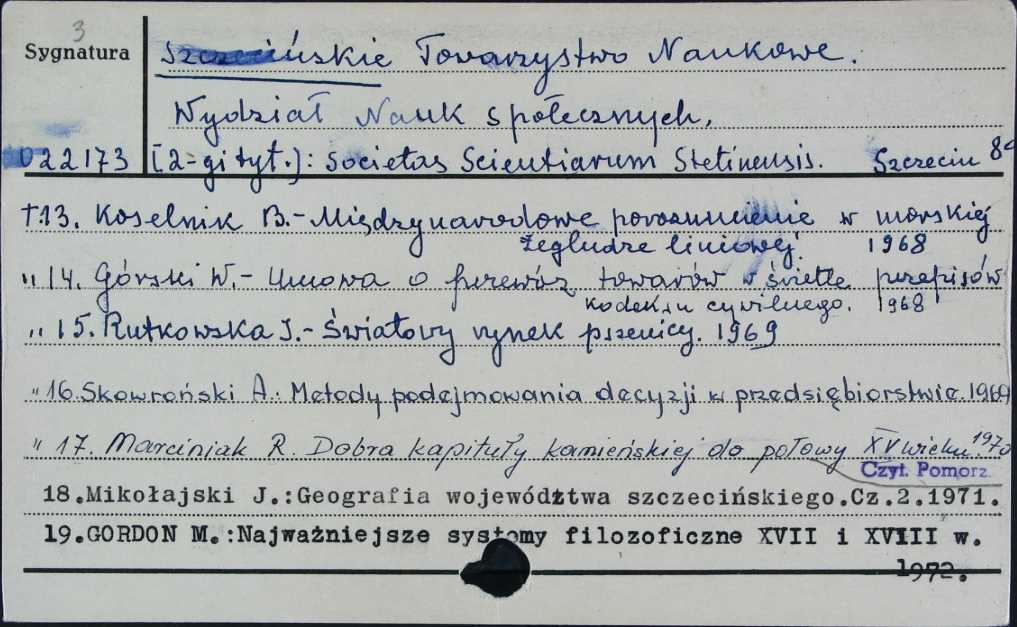 3
Sygnatura
Szczecińskie Towarzystwo Naukowe.
Wydział Nauk społecznych,
022173 [2-gi tyt.]: Societas Scientiarum Stetinensis. Szczecin 8°
T.13. Koselnik B.- Międzynarodowe porozumienie w morskiej
żegludze liniowej. 1968
" 14. Górski W.- Umowa o przewóz towarów w świetle przepisów
kodeksu cywilnego. 1968
" 15. Rutkowska J.- Światowy rynek pszenicy. 1969
" 16. Skowroński A.: Metody podejmowania decyzji w przedsiębiorstwie. 1969
" 17. Marciniak R. Dobra kapituły kamieńskiej do połowy XV wieku. 1970
Czyt. Pomorz.
18.Mikołajski J.:Geografia województwa szczecińskiego.Cz.2.1971.
19.GORDON M.:Najważniejsze systemy filozoficzne XVII i XVIII w.
1972.